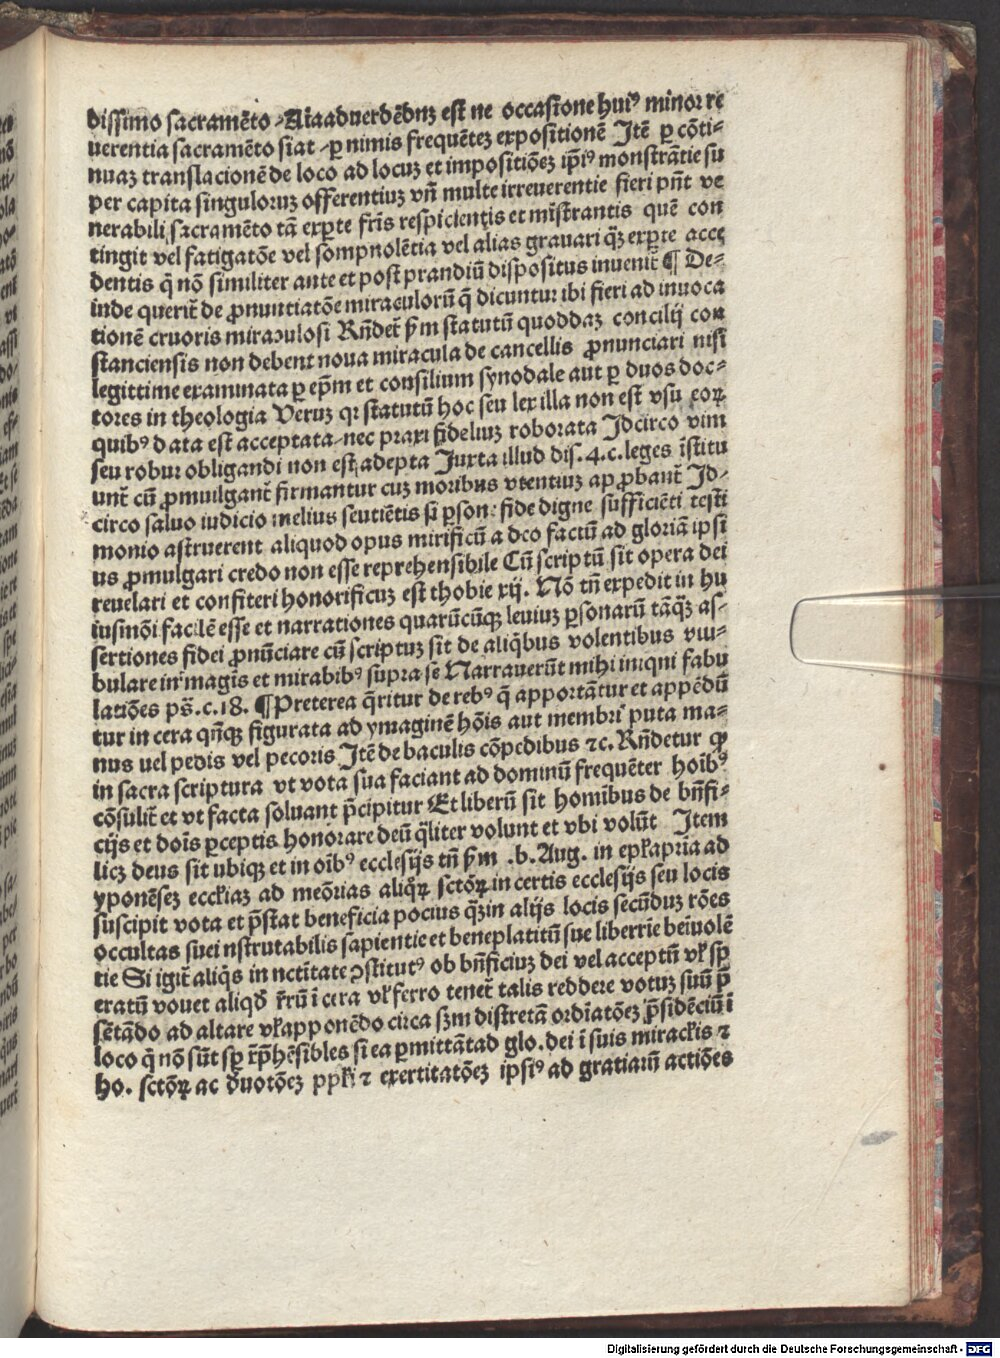 dissimo sacramēto Attā aduerdēdnꝫ est ne occasione huiꝰ minor re
uerentia sacramēto fiat ꝑ nimis frequēteꝫ expositionē Itē ꝑ cōti⸗
nuaꝫ translacionē de loco ad locuꝫ et impositiōeꝫ ip̄iꝰ monstrātie su
per capita singuloruꝫ offerentiuꝫ vn̄ multe irreuerentie fieri pn̄t ve
nerabili sacramēto tā exꝑte fr̄is respicientis et mīstrantis quē con
tingit vel fatigatōe vel sompnolētia vel alias grauari q̄ꝫ exꝑte acce
dentis q̄ nō similiter ante et post prandiū dispositus inuenit̄ ¶ De⸗
inde querit̄ de ꝓnuntiatōe miraculorū q̄ dicuntur ibi fieri ad inuoca
tionē cruoris miraculosi Rn̄det̄ ẜm statutū quoddaꝫ concilij con
stanciensis non debent noua miracula de cancellis ꝓnunciari nisi
legittime examinata ꝑ ep̄m et consilium synodale aut ꝑ duos doc⸗
tores in theologia Veruꝫ qr statutū hoc seu lex illa non est vsu eoꝝ
quibꝰ data est acceptata nec praxi fideliuꝫ roborata Idcirco vim
seu robur obligandi non est adepta Iuxta illud dis. 4. c. leges īstitu
unt̄ cū ꝓmulgant̄ firmantur cuꝫ moribus vtentiuꝫ approbant̄ Id⸗
circo saluo iudicio melius sentiētis si ꝑsone fide digne sufficiēti testi
monio astruerent aliquod opus mirificū a deo factū ad gloriā ipsi
us ꝓmulgari credo non esse reprehensibile Cū scriptū sit opera dei
reuelari et confiteri honorificuꝫ est thobie xij. Nō tn̄ expedit in hu
iusmōi facilē esse et narrationes quarūcūqꝫ leuiuꝫ ꝑsonarū tāq̄ꝫ as⸗
sertiones fidei ꝓnūciare cū scriptuꝫ sit de aliq̄bus volentibus viu⸗
bulare in magis et mirabibꝰ supra se Narrauerūt mihi iniqui fabu
latiōes ps̄. c. 18. ¶ Preterea q̄ritur de rebꝰ q̄ apportātur et appēdū
tur in cera qn̄qꝫ figurata ad ymaginē hōis aut membri puta ma⸗
nus uel pedis vel pecoris Itē de baculis cōpedibus ⁊c. Rn̄detur ꝙ
in sacra scriptura vt vota sua faciant ad dominū frequēter hoībꝰ
cōsulit̄ et vt facta soluant p̄cipitur Et liberū sit homībus de bn̄fi⸗
cijs et dois ꝑceptis honorare deū q̄liter volunt et vbi volūt Item
licꝫ deus sit ubiqꝫ et in oībꝰ ecclesijs tn̄ ẜm .b. Aug. in epl̄a pria ad
yponēseꝫ eccl̄iaꝫ ad meōrias aliq̄ꝝ sctōꝝ in certis ecclesijs seu locis
suscipit vota et p̄stat beneficia pocius q̄ꝫ in alijs locis secūduꝫ rōes
occultas sue inscrutabilis sapientie et beneplatitū sue liberrie beiuolē
tie Si igit̄ aliq̄s in nctītate ꝯstitutꝰ ob bn̄ficiuꝫ dei vel acceptū vl̄ sp
eratū vouet aliqđ r̄rū ī cera vl̄ ferro tenet̄ talis reddere votuꝫ suū p̄
sētādo ad altare vl̄ apponēdo circa sꝫm distretā ordiatōeꝫ p̄sidēciū ī
loco q̄ nō sūt sꝑ r̄p̄hēsibles si ea ꝑmittātad glo. dei ī suis mirackis ⁊
ho. sctōꝝ ac đuotōeꝫ ppl̄i ⁊ exertitatōeꝫ ipsiꝰ ad gratiarū actiōes
Digitalisierung gefördert durch die Deutsche Forschungsgemeinschaft - DFG